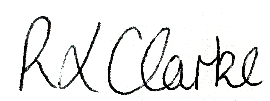 R L Clarke